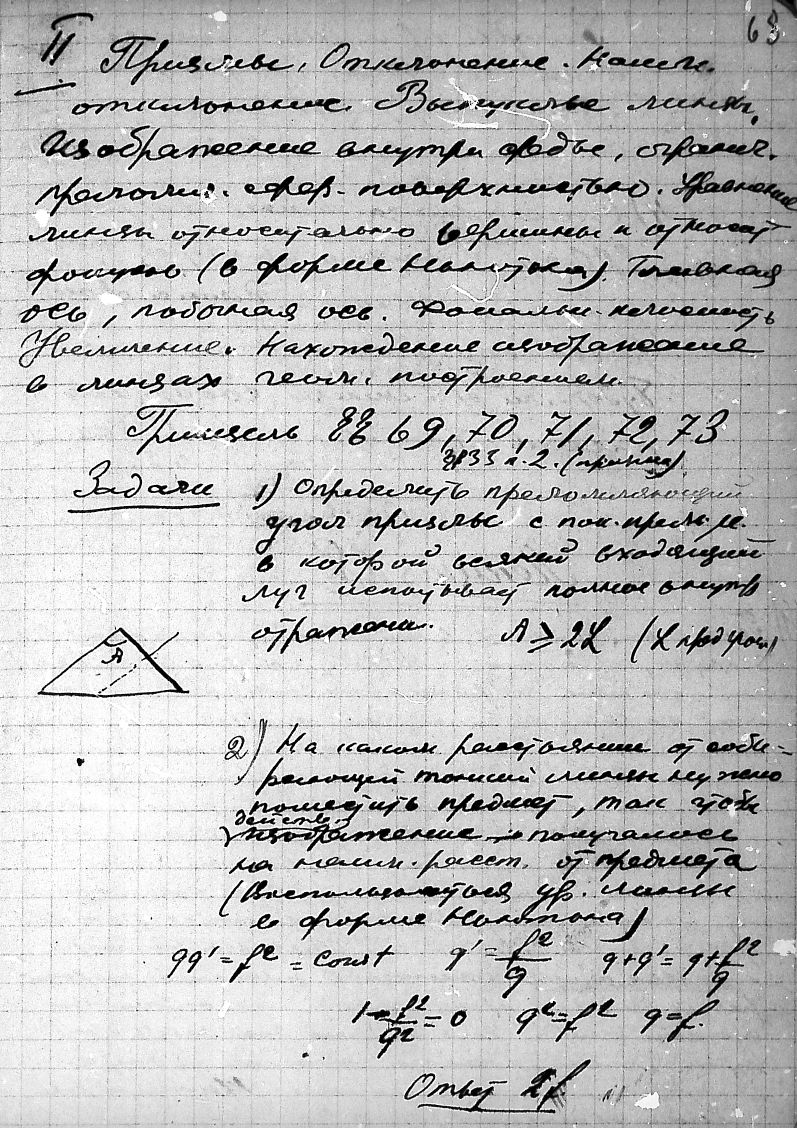 63
II
Призмы. Отклонение. Наим.
отклонение. Выпуклые линзы.
Изображение внутри среды, огранич.
преломл. сфер. поверхностью. Уравнение
линзы относительно вершины и относит.
фокусов (в форме Ньютона). Главная
ось, побочная ось. Фокальн. плоскость
Увеличение. Нахождение изображение
в линзах геом. построением.
69, 70, 71, 72, 73
Задачи 1) Определить преломляющий
угол призмы с пок. прелом. μ.
в которой всякий входящий
луч испытывает полное внутр
отражени. A ⩾ 2L (L пред угол)
A
2) На каком расстоянии от соби-
рающей тонкой линзы нужно
поместить предмет, так чтобы
действ.
изображение получалось
на наим. расст. от предмета
(Воспользоваться ур. линзы
в форме Ньютона)
qq' = f² = const q' = f²/q q+q' = q+f²/q
1 - f²/q² = 0 q² = f² q = f.
Ответ 2f